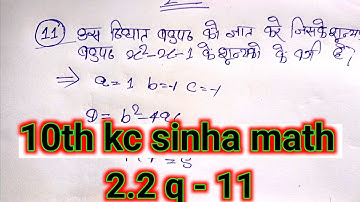 (11) उस द्विघात बहुपद को ज्ञात करें जिसके शून्यक
बहुपद x²-x-1 के शून्यकों के वर्ग हैं?
⇒ a=1 b=-1 c=-1
D = b²-4ac
10th kc sinha math
2.2 q - 11